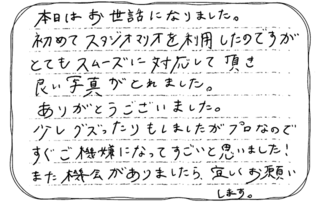 本日はお世話になりました。
初めてスタジオマリオを利用したのですが
とてもスムーズに対応して頂き
良い写真がとれました。
ありがとうございました。
少しグズったりもしましたがプロなので
すぐご機嫌になってすごいと思いました!
また機会がありましたら、宜しくお願い
します。